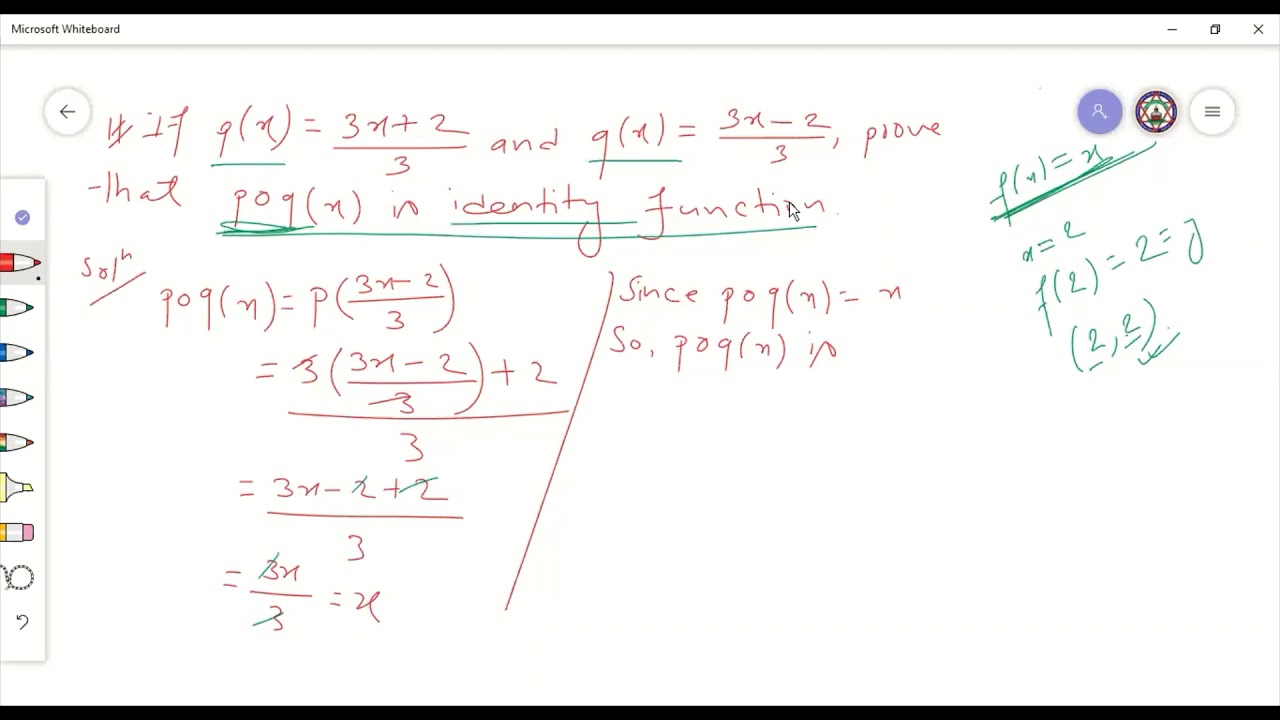 Microsoft Whiteboard
# If q(x) = (3x+2)/3 and q(x) = (3x-2)/3, prove
that poq(x) is identity function.
Solⁿ
poq(x) = p((3x-2)/3)
= (3((3x-2)/3)+2)/3
= (3x-2+2)/3
= 3x/3 = x
Since poq(x) = x
So, poq(x) is
f(x) = x
x = 2
f(2) = 2 = y
(2, 2)